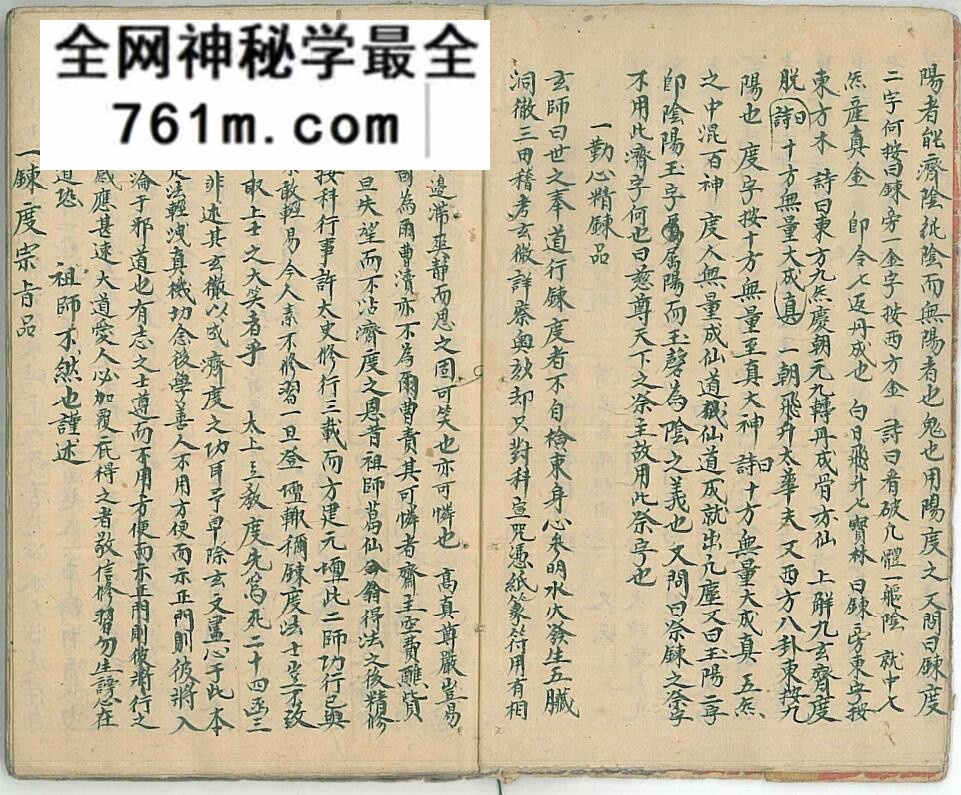 全网神秘学最全
761m.com
陽者能濟陰純陰而無陽者也鬼也用陽度之又問曰鍊度
二字何按曰鍊旁一金字按西方金 詩曰看破凡體一軀陰 就中七
炁產真金 即令七返丹成也 白日飛升七寶林 曰鍊旁東字按
東方木 詩曰東方九炁慶朝元九轉丹成骨亦仙 上解九玄齊度
脫 詩曰十方無量大成真 一朝飛升太華天 又西方八卦東按九
陽也 度字按十方無量至真大神 詩曰十方無量大成真 五炁
之中混百神 度人無量成仙道 仙道成就出凡塵 又曰玉陽二字
即陰陽玉字屬陽而玉聲為陰之義也 又問曰祭鍊之祭字
不用此濟字何也曰慈尊天下之祭主故用此祭字也
一勤心精鍊品
玄師曰世之奉道行鍊度者不自檢束身心參明水火發生五臟
洞徹三田稽考玄微詳察奧訣却只對科宣咒憑紙篆符用有相
邊滯 靜而思之固可笑也亦可憐也 高真尊嚴豈易
為爾曹瀆亦不為爾曹責其可憐者齋主空費醮貲
旦失望而不沾濟度之恩昔祖師葛仙翁得法之後精修
按科行事許大史修行三載而方建元壇此二師功行已與
敢輕易今人素不修習一旦登壇輒稱鍊度法士豈不致
取上士之大笑者乎 太上三教度先為死二十四函三
非述其玄微以成濟度之功耳予早除玄又盡心于此本
法輕洩真機切念後學善人不用方便而示正門則彼將入
淪于邪道也有志之士尊而不用方便而示正門則彼將行之
感應甚速大道愛人必加覆庇得之者敬信修習勿生謗忽在
道恐 祖師不然也謹述
一鍊度宗旨品